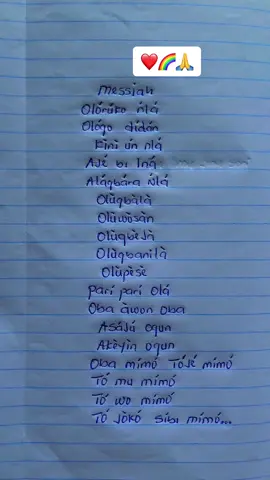 ❤️🌈🙏
Messiah
Olórúko Ńlá
Ológo dídán
Kìnì ún nlá
Ajé bi Iná
Alágbára Ńlá
Olùgbàlà
Olùwòsàn
Olùgbèjà
Olùgbanilà
Olùpèsè
Pari pari Olá
Oba àwon Oba
Asájú ogun
Akèyìn ogun
Oba mímó Tójé mímó
Tó mu mímó
Tó wo mímó
Tó jòkó sibi mímó...